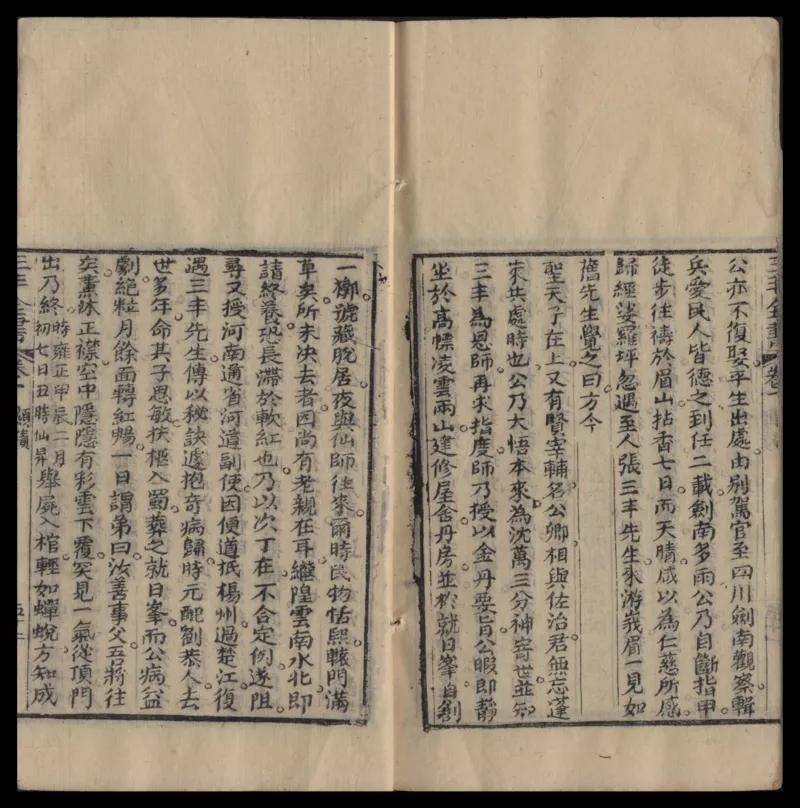 三丰全書 卷一
公亦不復娶平生出處由別駕官至四川劍南觀察輯
兵愛民人皆德之到任二載劍南多雨公乃自斷指甲
徒步往禱於眉山拈香七日而天晴咸以為仁慈所感
歸經娑羅坪忽遇至人張三丰先生來游峩眉一見如
舊先生覺之曰方今
聖天子在上又有賢宰輔名公卿相與佐治君無忘蓬
來共處時也公乃大悟本來為沈萬三分神寄世並知
三丰為恩師再求指度師乃授以金丹要旨公暇即靜
坐於高幖凌雲兩山建修屋舍丹房並於就日峯自刱
一槨號藏脫居夜與仙師往來爾時民物恬熙轅門滿
草矣所未決去者因尚有老親在耳繼隍雲南水北即
請終養恐長滯於軟紅也乃以次丁在不合定例遂阻
尋又授河南通省河道副使因便道抵楊州過楚江復
遇三丰先生傳以秘訣遽抱奇病歸時元配劉恭人去
世多年命其子思敏扶柩入蜀葬之就日峯而公病益
劇絕粒月餘面轉紅暢一日謂弟曰汝善事父吾將往
矣薰沐正襟空中隱隱有彩雲下覆突見一氣從頂門
出乃終時雍正甲辰二月初七日丑時仙昇舉屍入棺輕如蟬蛻方知成
三丰全書 卷一 顯蹟